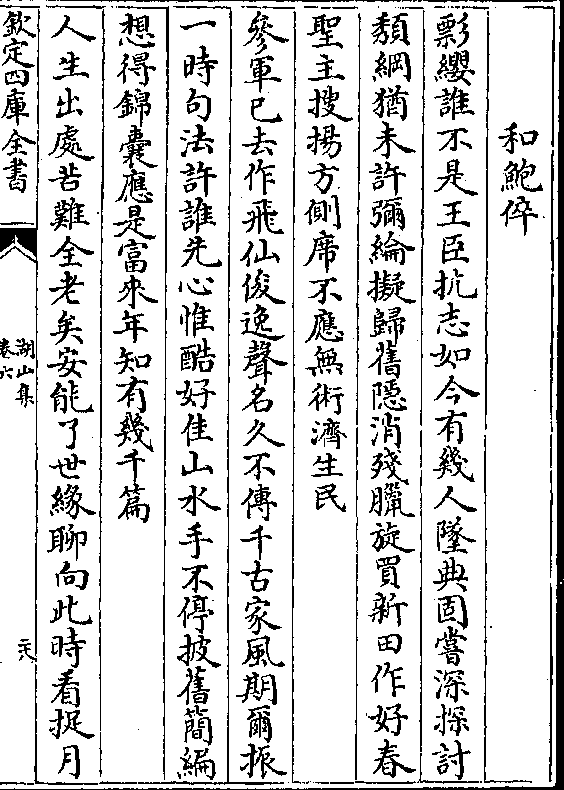 和鮑倅
影纓誰不是王臣抗志如今有幾人墜典固嘗深探討
頽綱猶未許彌綸擬歸舊隱消殘臘旋買新田作好春
聖主搜揚方側席不應無術濟生民
參軍已去作飛仙俊逸聲名久不傳千古家風期爾振
一時句法許誰先心惟酷好佳山水手不停披舊簡編
想得錦囊應是富來年知有幾千篇
人生出處苦難全老矣安能了世緣聊向此時看捉月
欽定四庫全書
湖山集
卷六
二十八